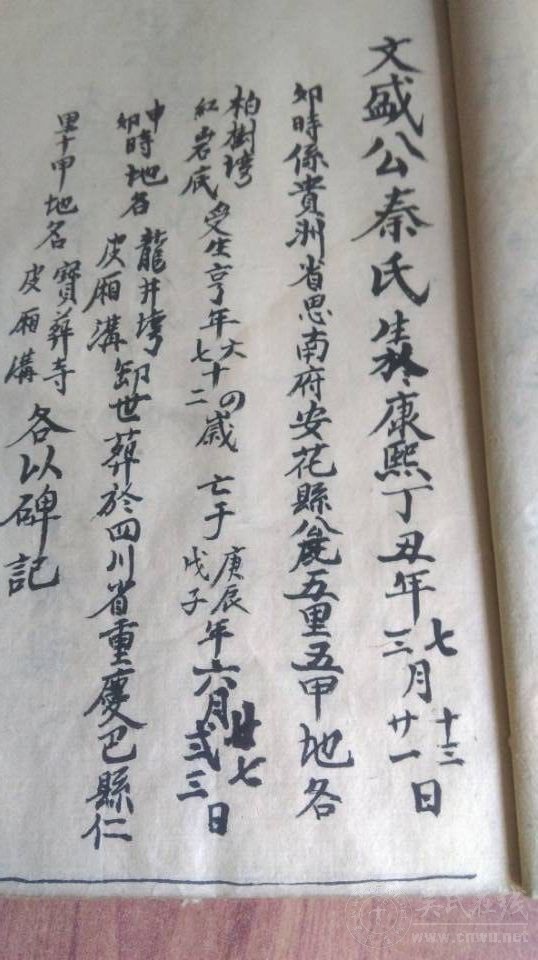 文盛公秦氏生於康熙丁丑年七三月十三廿一日
卯時係貴洲省思南府安花縣八甩五里五甲地各
柏樹塆紅岩底受生亨年六十四七十二歲亡于庚辰戊子年六月廿七弍三日
申卯時地名龍井塆皮厢溝卸世葬於四川省重慶巴縣仁
里十甲地名寳葬寺皮厢溝各以碑記
www.cnwu.net